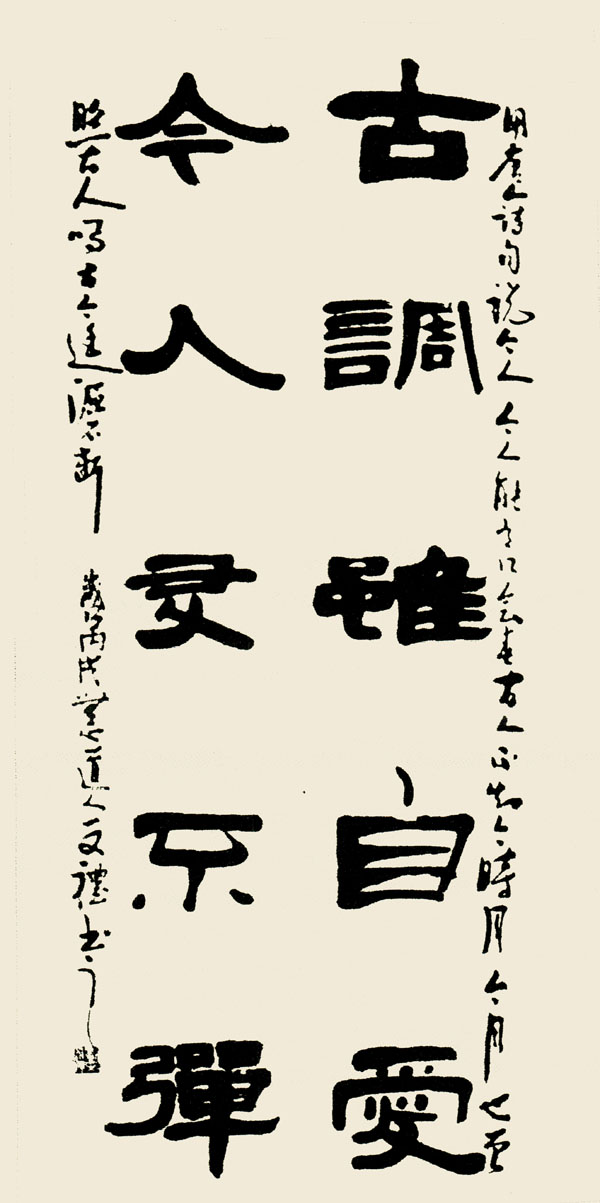 用唐人詩句說今人今人能古人不知今時月今月也曾
古調雖自愛
今人多不彈
照古人嗎古今不斷
歲丙戌道人文禮书